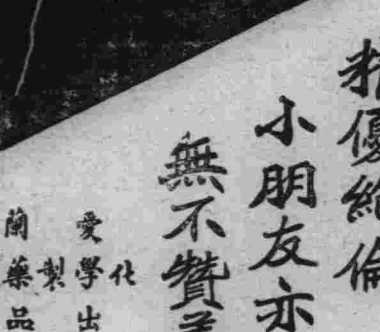 優絕倫
小朋友亦
無不贊
化
愛學出
製
蘭藥品